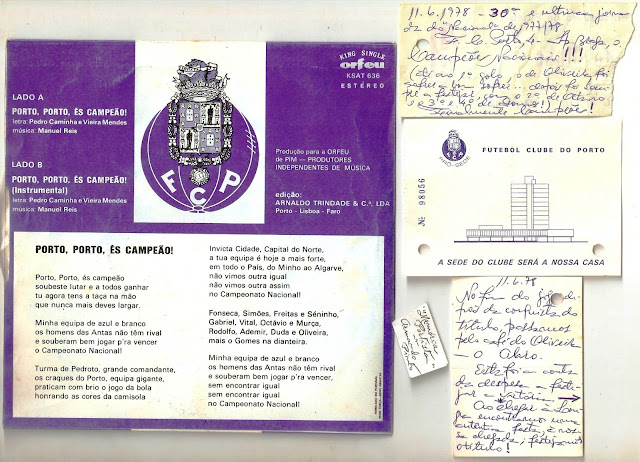 KING SINGLE
orfeu
KSAT 636
ESTÉREO
LADO A
PORTO, PORTO, ÉS CAMPEÃO!
letra: Pedro Caminha e Vieira Mendes
música: Manuel Reis
LADO B
PORTO, PORTO, ÉS CAMPEÃO!
(Instrumental)
letra: Pedro Caminha e Vieira Mendes
música: Manuel Reis
FCP
Produção para a ORFEU
de PIM — PRODUTORES
INDEPENDENTES DE MÚSICA
edição:
ARNALDO TRINDADE & C.ª, LDA
Porto - Lisboa - Faro
PORTO, PORTO, ÉS CAMPEÃO!
Porto, Porto, és campeão
soubeste lutar e a todos ganhar
tu agora tens a taça na mão
que nunca mais deves largar.
Minha equipa de azul e branco
os homens das Antas não têm rival
e souberam bem jogar p'ra vencer
o Campeonato Nacional!
Turma de Pedroto, grande comandante,
os craques do Porto, equipa gigante,
praticam com brio o jogo da bola
honrando as cores da camisola
Invicta Cidade, Capital do Norte,
a tua equipa é hoje a mais forte,
em todo o País, do Minho ao Algarve,
não vimos outra igual
não vimos outra assim
no Campeonato Nacional!
Fonseca, Simões, Freitas e Séninho,
Gabriel, Vital, Octávio e Murça,
Rodolfo, Ademir, Duda e Oliveira,
mais o Gomes na dianteira.
Minha equipa de azul e branco
os homens das Antas não têm rival
e souberam bem jogar p'ra vencer,
sem encontrar igual
sem encontrar igual
no Campeonato Nacional!
11.6.1978 - 30ª e última jorna
da do "Nacional" de 1977/78
F. C. Porto, 4 - , o
Campeão Nacional!!!
1º golo, o de Oliveira foi
depois foi
o 2º de
e 3º e 4º de Gomes!
Finalmente Campeões!
FUTEBOL CLUBE DO PORTO
Nº 98056
A SEDE DO CLUBE SERÁ A NOSSA CASA
11.6.78
No fim do jogo, de
pois da conquista do
título, passamos
pelo café do Oliveira
— o Abro.
Este foi a conta
da despesa a feste
jar a vitória.
Ao chegar a Lon
ga encontramos uma
autêntica festa, à nos
sa chegada, festejamos
o título!